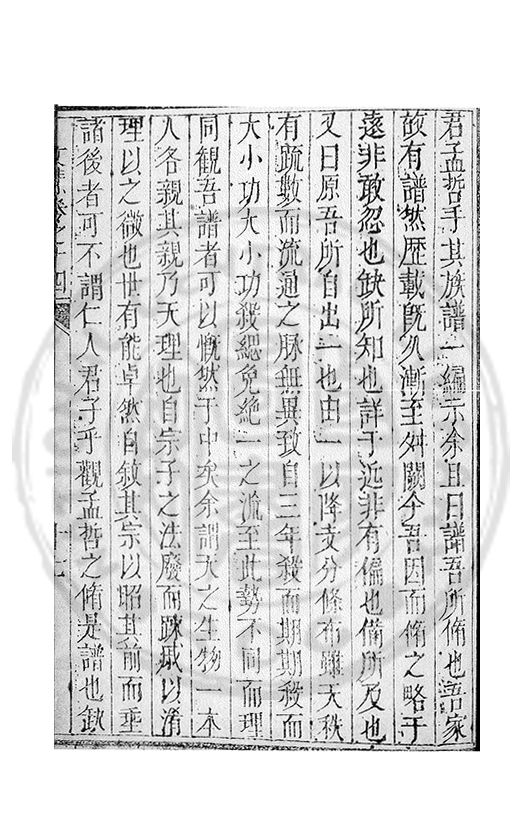 君孟哲手其族譜一編示余且曰譜吾所脩也吾家
故有譜然歷載既久漸至舛闕今吾因而脩之略于
遠非敢忽也缺所知也詳于近非有偏也備所及也
又曰原吾所自出一也由一以降支分條布雖天秩
有疏數而流通之脉無異致自三年殺而期期殺而
大小功大小功殺緦免絶一之流至此勢不同而理
同觀吾譜者可以慨然于中矣余謂天之生物一本
人各親其親乃天理也自宗子之法廢而踈戚以淆
理以之微也世有能卓然自敍其宗以昭其前而垂
諸後者可不謂仁人君子乎觀孟哲之脩是譜也缺
卷之十四
十七